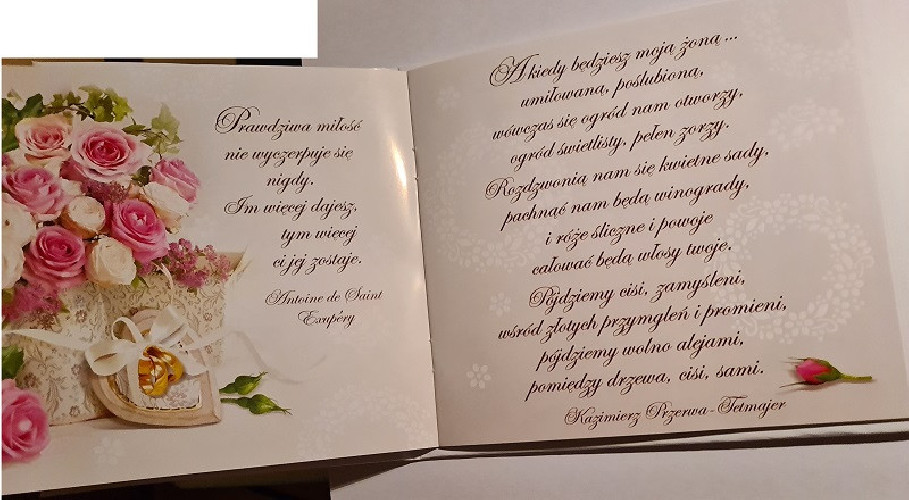 Prawdziwa miłość
nie wyczerpuje się
nigdy.
Im więcej dajesz,
tym więcej
ci jej zostaje.
Antoine de Saint
Exupéry
A kiedy będziesz moją żoną...
umiłowaną, poślubioną,
wówczas się ogród nam otworzy,
ogród świetlisty, pełen zorzy.
Rozdzwonią nam się kwietne sady,
pachnąć nam będą winogrady,
i róże śliczne i powoje
całować będą włosy twoje.
Pójdziemy cisi, zamyśleni,
wśród złotych przymgleń i promieni,
pójdziemy wolno alejami,
pomiędzy drzewa, cisi, sami.
Kazimierz Przerwa-Tetmajer